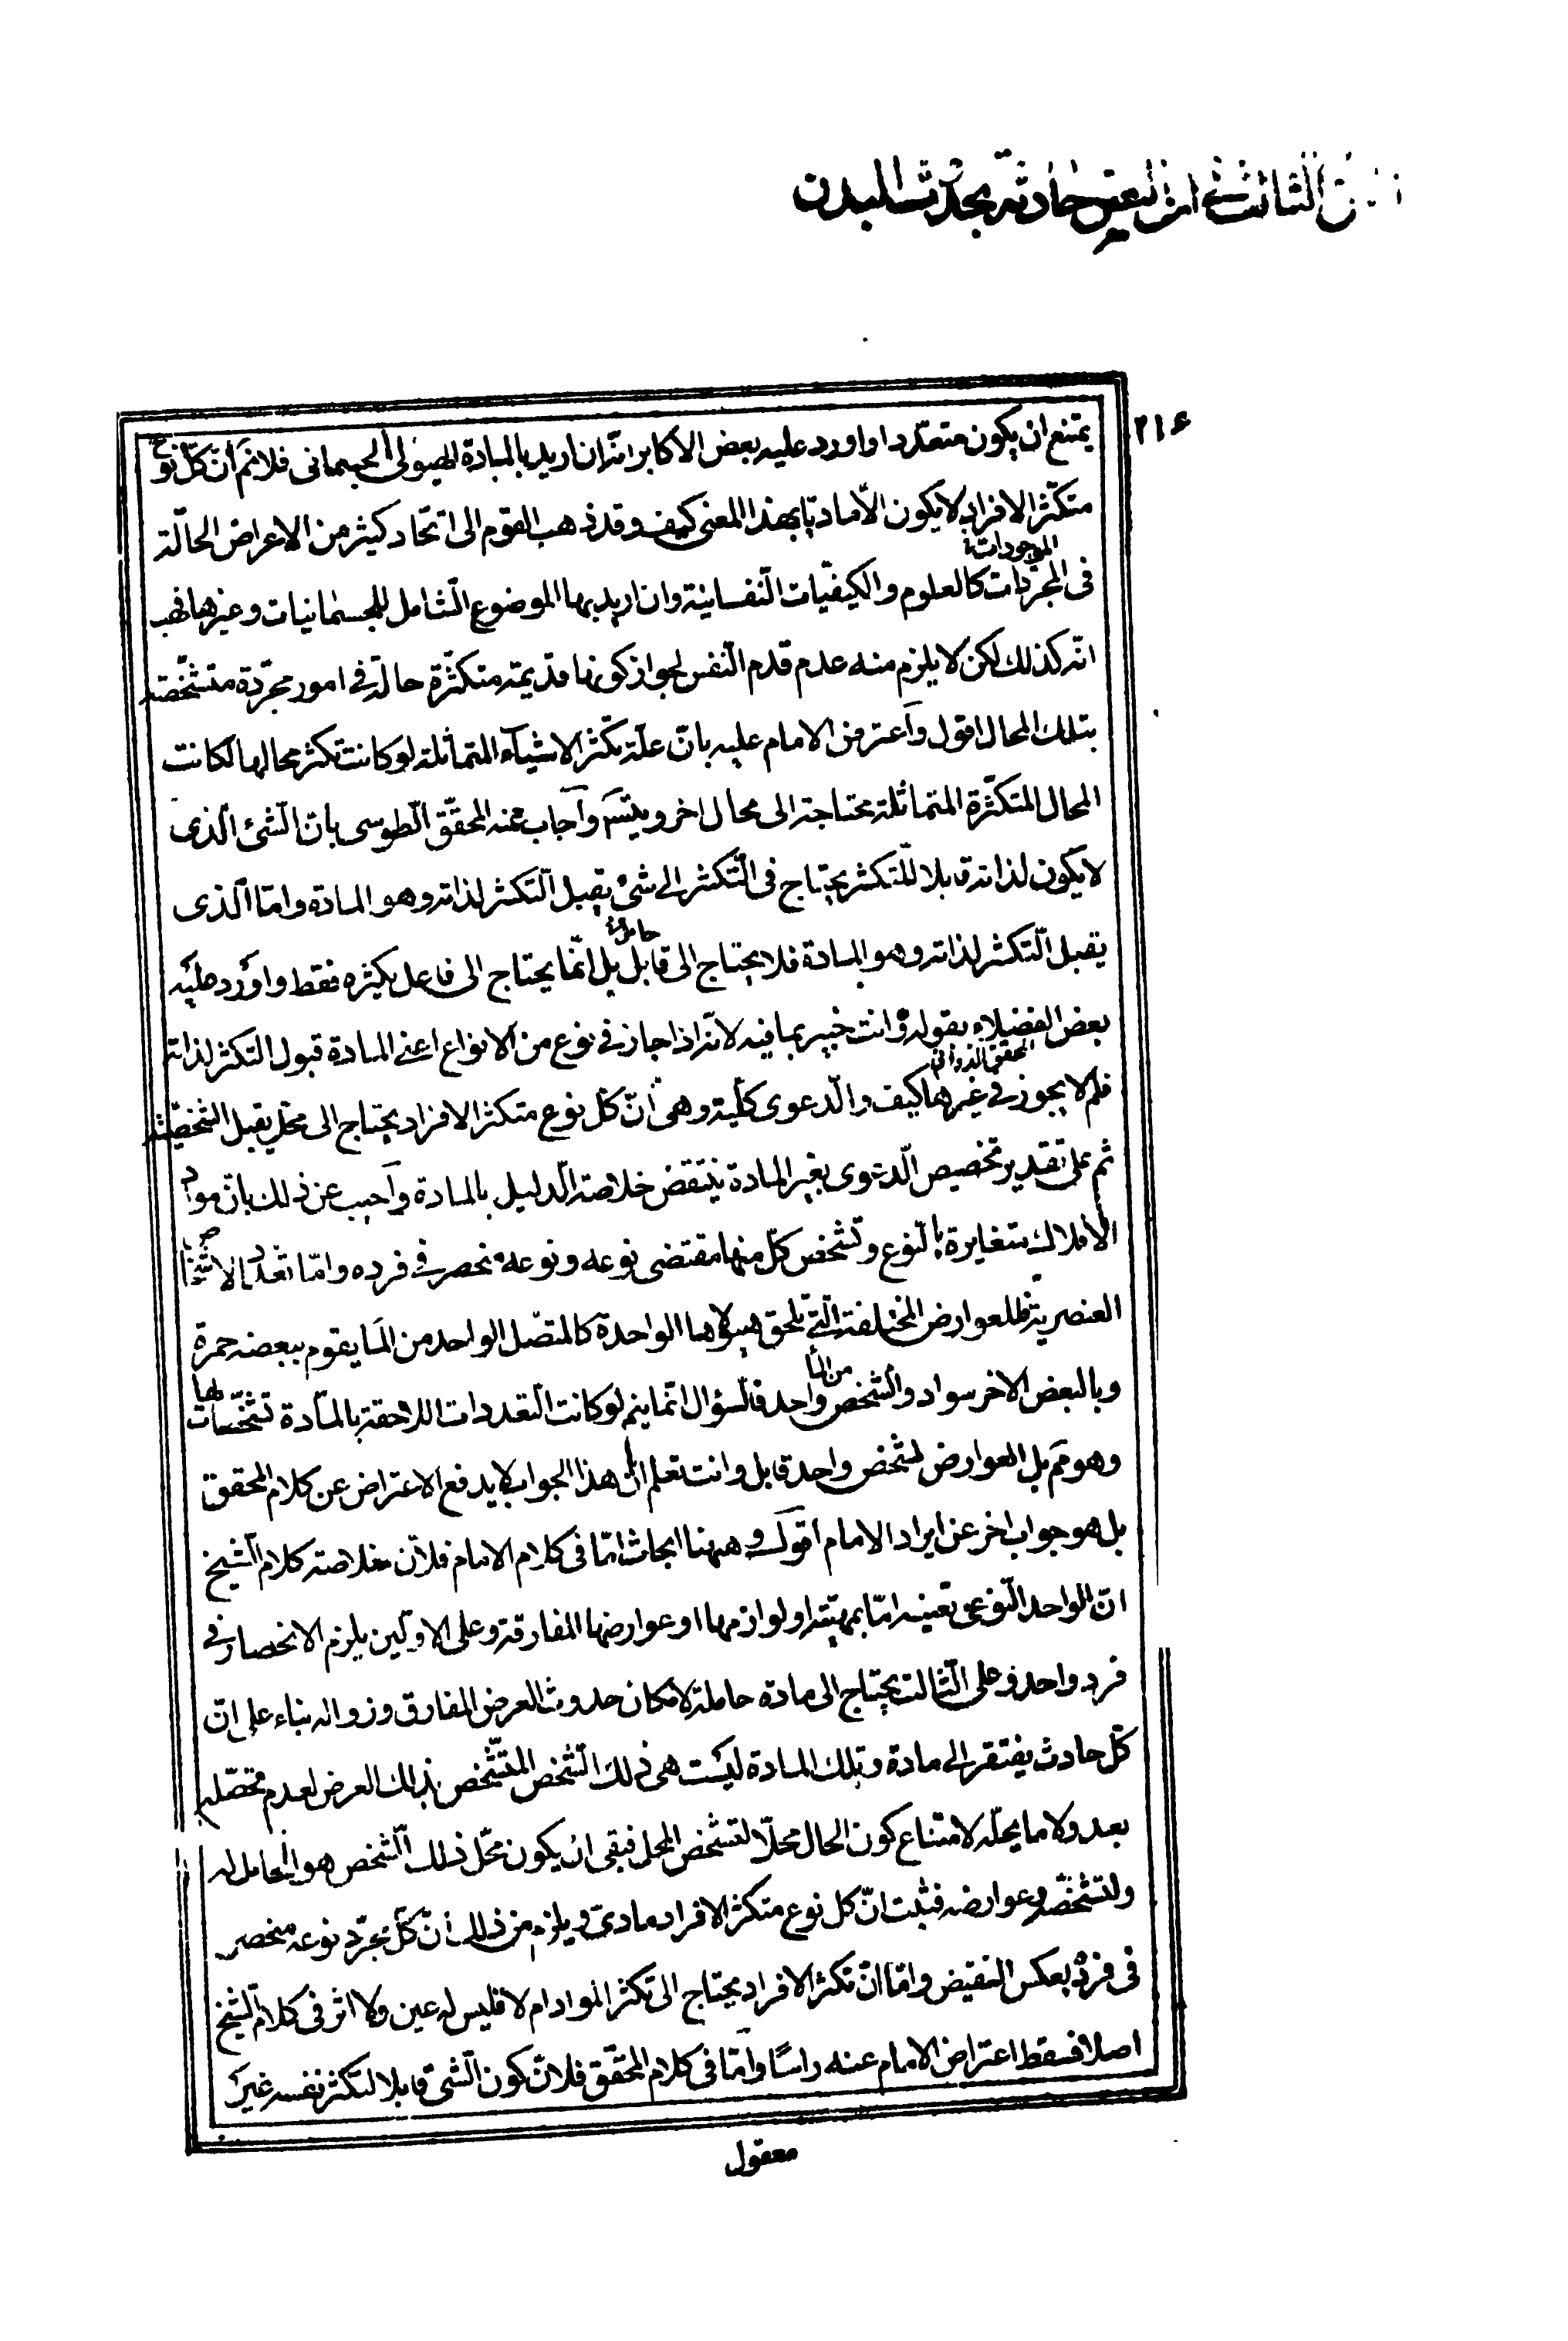 الثالث في ان النفس حادثة بحدوث البدن
٢١٤
يمتنع ان يكون متعددا واورد عليه بعض الاكابر انه ان اريد بالمادة الهيولى الجسمانى فلانم أن كلّ نوع
متكثّر الافراد لا يكون الّا ماديّا بهذا المعنى كيف وقد ذهب القوم الى اتحاد كثير من الاعراض الحالّة
الموجودات
فى المجرّدات كالعلوم والكيفيّات النّفسانية وان اريد بها الموضوع الشامل للجسمانيات وغيرها فهب
انّه كذلك لكن لا يلزم منه عدم قدم النّفس لجواز كونها قديمة متكثّرة حالّة فى امور مجرّدة متشخّصة
بتلك المحال اقول وأعترض الامام عليه بانّ علّة تكثّر الاشيآء المتماثلة لو كانت تكثر محالها لكانت
المحال المتكثّرة المتماثلة محتاجة الى محال اخر ويتسم وآجاب عنه المحقّق الطوسى بانّ الشئ الّذى
لا يكون لذاته قابلا للتكثر يحتاج فى التّكثر الى شئ يقبل التّكثر لذاته وهو المادة وامّا الّذى
يقبل التّكثر لذاته وهو المادة فلا يحتاج الى قابل بل انّما يحتاج الى فاعل يكثره فقط واورد عليه
بعض الفضلاء بقوله وانت خبير بما فيه لانّه اذا جاز فى نوع من الانواع اعنى المادة قبول التكثر لذاته
المحقق الدوانى
فلم لا يجوز فى غيرها كيف والّدعوى كلّية وهى أنّ كلّ نوع متكثر الافراد يحتاج الى محل يقبل الشخصيّة
ثم على تقدير تخصيص الّدعوى بغير المادة ينتقض خلاصة الّدليل بالمادة وآجيب عن ذلك بانّ مواد
الأفلاك متغايرة بالّنوع وتشخص كلّ منها مقتضى نوعه ونوعه منحصر فى فرده وامّا تعدد الاشخاص
العنصرية فللعوارض المختلفة الّتى تلحق هيولاها الواحدة كالمتصّل الواحد من الما يقوم ببعضه حمرة
من الما
وبالبعض الاخر سواد والشخص واحد فالسؤال انّما يتم لو كانت التّعددات اللاحقة بالمادة تشخّصاتها
وهو مم بل العوارض لشخص واحد قابل وانت تعلم انّ هذا الجواب لا يدفع الاعتراض عن كلام المحقق
بل هو جواب اخر عن ايراد الامام أقول وههنا ابحاث امّا فى كلام الامام فلأن خلاصة كلام الشيخ
انّ الواحد النّوعى تعينه امّا بمهيّته او لوازمها او عوارضها المفارقة وعلى الاوّلين يلزم الانحصار فى
فرد واحد وعلى الثّالث يحتاج الى مادة حاملة لامكان حدوث العرض المفارق وزواله بناء على انّ
كلّ حادث يفتقر الى مادة وتلك المادة ليست هى ذلك الشخص المتشخص بذلك العرض لعدم تحصّله
بعد ولا ما يحلّه لامتناع كون الحال محلّا لتشخص المحل فبقى ان يكون محّل ذلك الشخص هو الحامل له
ولتشخّصه وعوارضه فثبت انّ كل نوع متكثر الافراد مادى ويلزم من ذلك أنّ كلّ مجرّد نوعه منحصر
فى فرد بعكس النقيض وامّا انّ تكثر الافراد يحتاج الى تكثر المواد ام لا فليس له عين ولا اثر فى كلام الشيخ
اصلا فسقط اعتراض الامام عنه راسًا وآمّا فى كلام المحقّق فلانّ كون الشى قابلا لتكثر نفسه غير
معقول